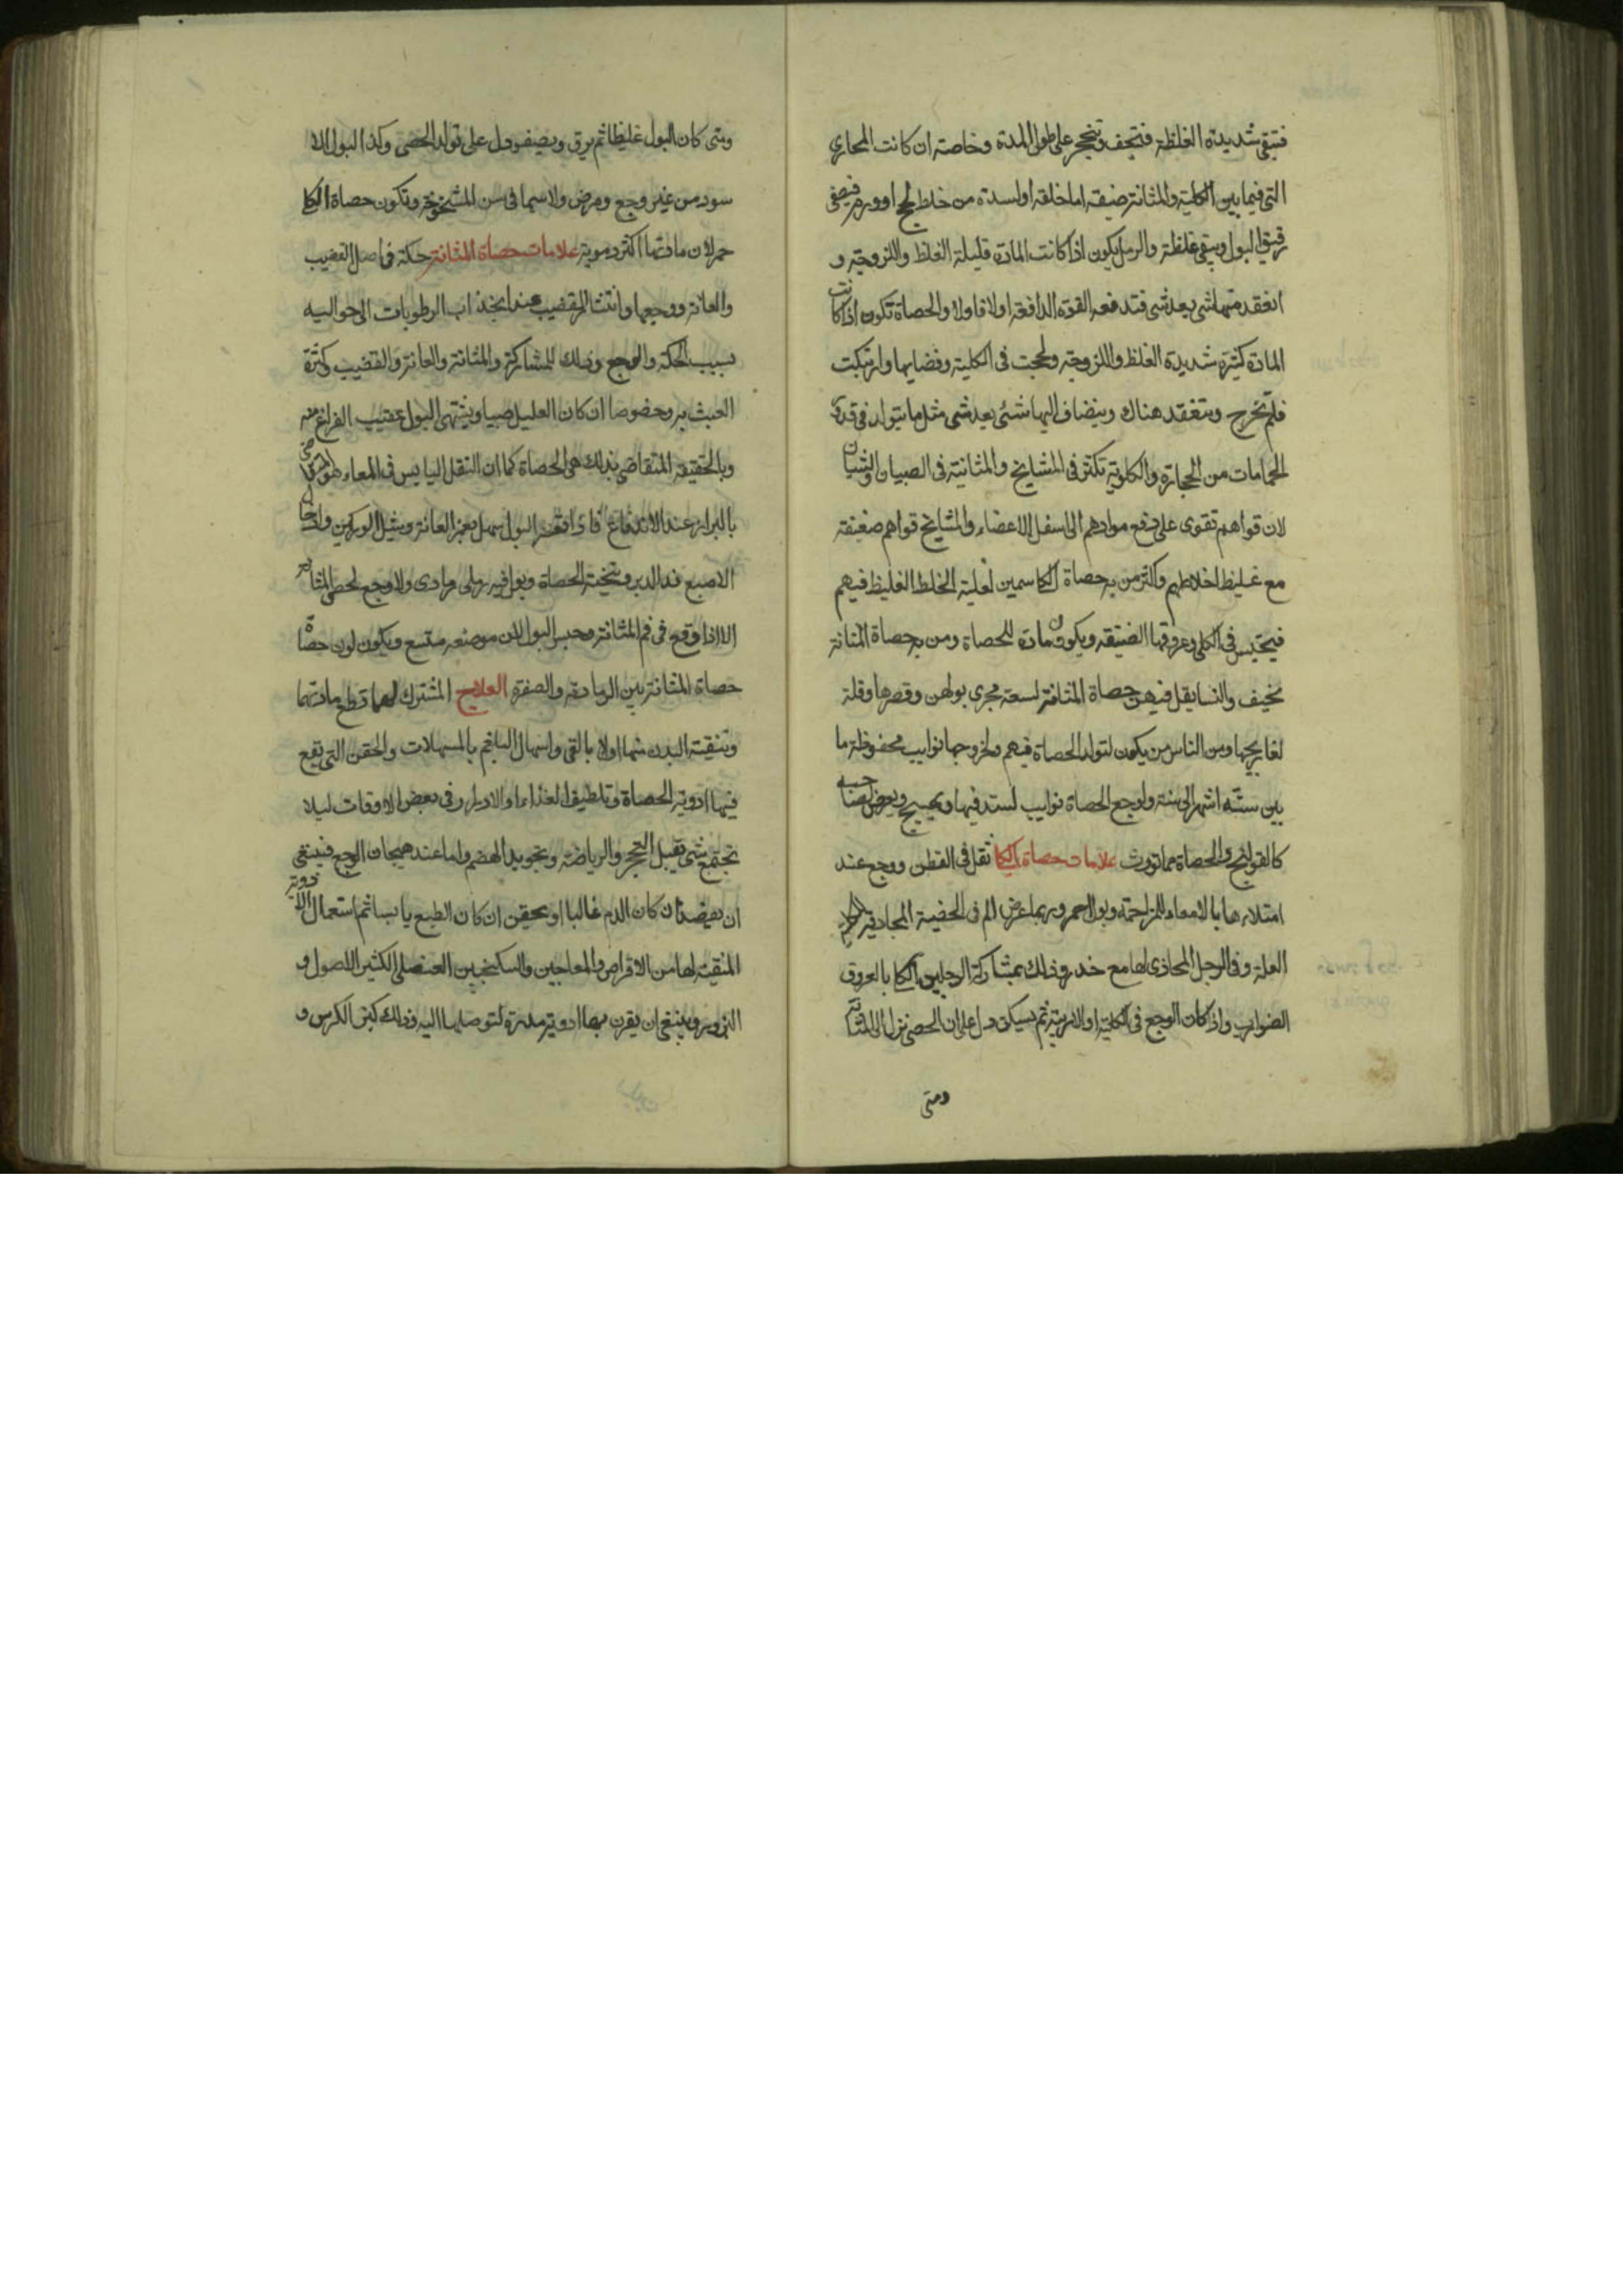 فتبقى شديدة الغلظة فتجف وتتحجر على طول المدة وخاصة ان كانت المجاري
التى فيما بين الكلية والمثانة ضيقة اما خلقة او لسدة من خلط لحج او ورم فيصفى
رقيق البول ويبقى غلظة والرمل يكون اذا كانت المادة قليلة الغلظ واللزوجة و
انعقد منها شى بعد شى فتدفعه القوة الدافعة اولا فاولا والحصاة تكون اذا كانت
المادة كثيرة شديدة الغلظ واللزوجة ولحجت فى الكلية وفضايها وارتبكت
فلم تخرج وتنعقد هناك وينضاف اليها شئى بعد شى مثل ما يتولد فى قدر
الحمامات من الحجارة والكلوية تكثر فى المشايخ والمثانية فى الصبيان والشبان
لان قواهم تقوى على دفع موادهم الى اسفل الاعضاء والمشايخ قواهم ضعيفة
مع غليظ اخلاطهم واكثر من به حصاة الكلا سمين لغلبة الخلط الغليظ فيهم
فيحتبس فى الكلى وعروقها الضيقة ويكون مادة للحصاة ومن به حصاة المثانة
نحيف والنسا يقل فيهن حصاة المثانة لسعة مجرى بولهن وقصرها وقلة
تعاريجها ومن الناس من يكون لتولد الحصاة فيهم ولخروجها نوايب محفوظة ما
بين ستة اشهر الى سنة ولوجع الحصاة نوايب تستد فيها ويهيج ويعرض لصاحبه
كالقولنج والحصاة مما تورث علامات حصاة الكلا ثقل فى القطن ووجع عند
امتلاء هابا الامعاء للمزاحمة وبول احمر وربما عرض الم فى الخصية المحاذية
العلة وفى الرجل المحاذى لها مع خدر وذلك بمشاركة الرجلين الكلا بالعروق
الضوارب واذا كان الوجع فى الكلية او الاربية ثم يسكن دل على ان الحصى نزل الى المثانة
ومتى
ومتى كان البول غليظا ثم يرق ويصفو دل على تولد الحصى وكذا البول الا
سود من غير وجع ومرض ولاسيما فى سن الشيخوخة وتكون حصاة الكلا
حمر لان مادتها اكثر دموية علامات حصاة المثانة حكة فى اصل القضيب
والعانة ووجعها وانتشار القضيب عند انجذاب الرطوبات الى حواليه
بسبب الحكة والوجع وذلك للمشاركة والمثانة والعانة والقضيب وكثرة
العبث به وخصوصا ان كان العليل صبيا ويشتهى البول عقيب الفراغ منه
وبالحقيقة المتقاضى بذلك هى الحصاة كما ان الثقل اليابس فى المعاء هو المتقاضى
بالبراز عند الاندفاع فاذا تعسر البول سهل بغمز العانة وبشيل الوركين وادخال
الاصبع فى الدبر وتنحية الحصاة وبول فيه رملى رمادى ولا وجع لحصى المثانة
الا اذا وقع فى فم المثانة وحبس البول لان موضعه متسع ويكون لون حصاة
حصاة المثانة بين الرمادية والصفرة العلاج المشترك لهما قطع مادتهما
وتنقية البدن منها اولا بالقى واسهال البلغم بالمسهلات والحقن التى يقع
فيها ادوية الحصاة وتلطيف الغذاء والادرار فى بعض الاوقات ليلا
تجتمع شى يقبل التحجر والرياضة وتجويد الهضم واما عند هيجان الوجع فينبغى
ان يفصد ان كان الدم غالبا او يحقن ان كان الطبع يابسا ثم استعمال الادوية
المنقية لها من الاقراص والمعاجين والسكنجبين العنصلى الكثير الاصول و
البزور وينبغى ان يقرن بها ادوية مدرة لتوصلها اليه وذلك كبزر الكرفس و